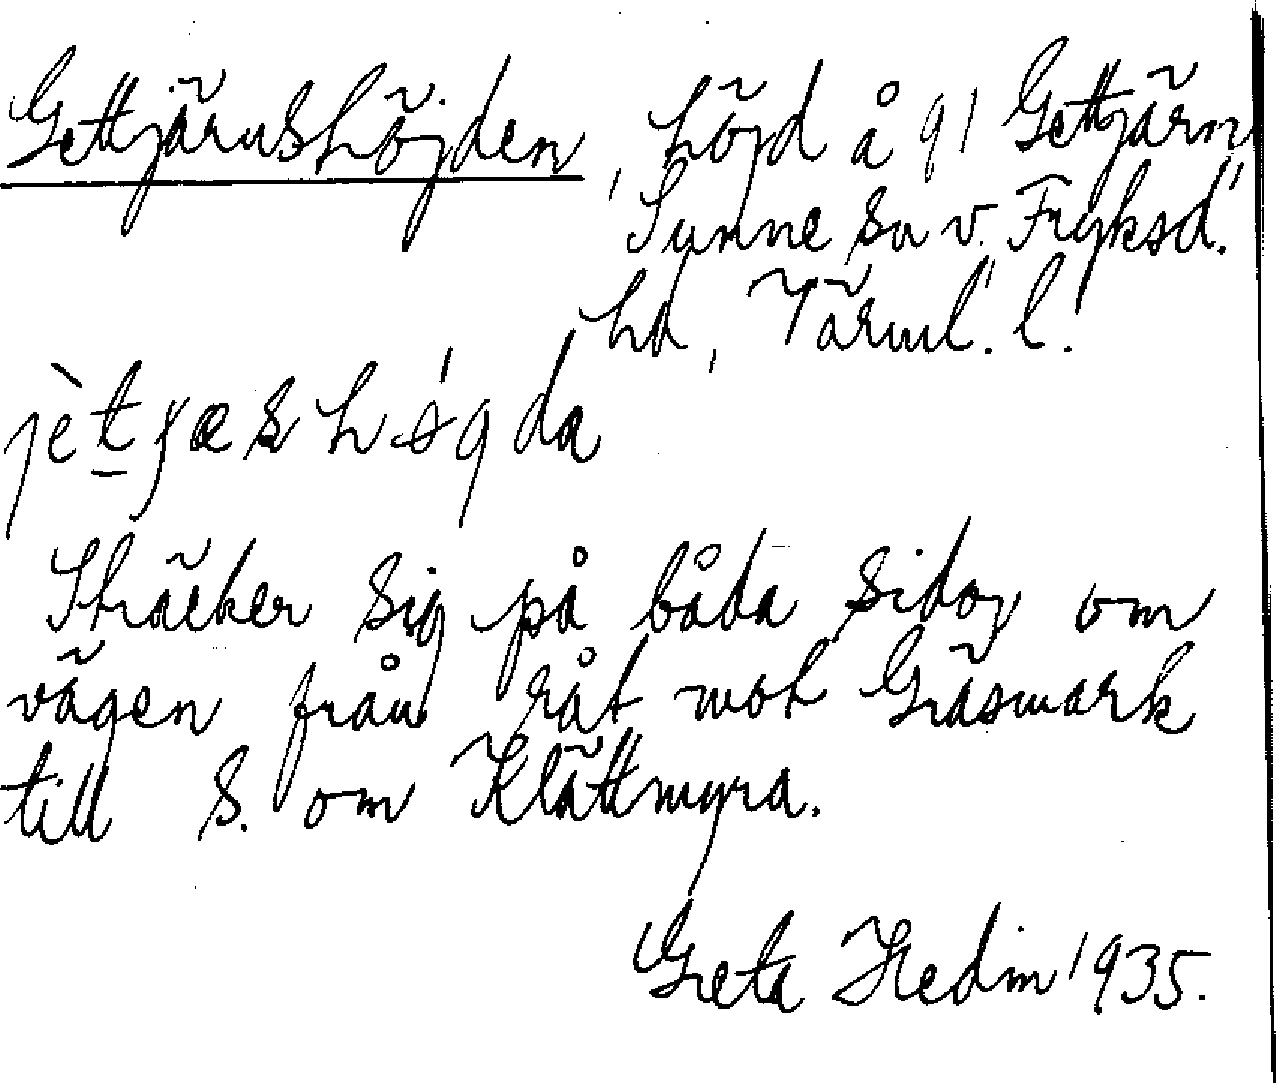 Gettjärnshöjden, höjd å 91 Gettjärn,
Sunne sn v. Fryksd.
hd, Värml. l.
Sträcker sig på båda sidor om
vägen från råt mot Gräsmark
till S. om Klättmyra.
Greta Hedin 1935.